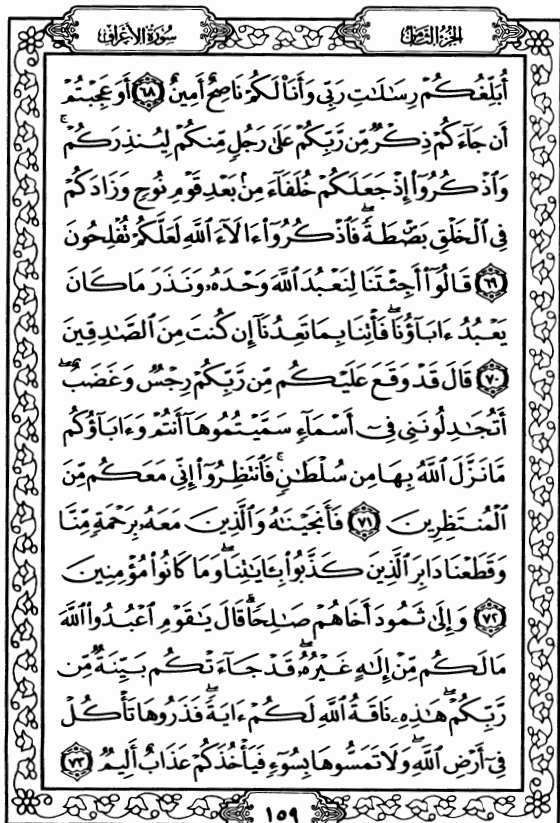 الجزء الثامن
سورة الأعراف
أُبَلِّغُكُمْ رِسَالَاتِ رَبِّي وَأَنَا۠ لَكُمْ نَاصِحٌ أَمِينٌ ﴿٦٨﴾ أَوَعَجِبْتُمْ
أَن جَآءَكُمْ ذِكْرٌ مِّن رَّبِّكُمْ عَلَىٰ رَجُلٍ مِّنكُمْ لِيُنذِرَكُمْ ۚ
وَٱذْكُرُوٓا۟ إِذْ جَعَلَكُمْ خُلَفَآءَ مِنۢ بَعْدِ قَوْمِ نُوحٍ وَزَادَكُمْ
فِى ٱلْخَلْقِ بَصْۜطَةً ۖ فَٱذْكُرُوٓا۟ ءَالَآءَ ٱللَّهِ لَعَلَّكُمْ تُفْلِحُونَ
﴿٦٩﴾ قَالُوٓا۟ أَجِئْتَنَا لِنَعْبُدَ ٱللَّهَ وَحْدَهُۥ وَنَذَرَ مَا كَانَ
يَعْبُدُ ءَابَآؤُنَا ۖ فَأْتِنَا بِمَا تَعِدُنَآ إِن كُنتَ مِنَ ٱلصَّٰدِقِينَ
﴿٧٠﴾ قَالَ قَدْ وَقَعَ عَلَيْكُم مِّن رَّبِّكُمْ رِجْسٌ وَغَضَبٌ ۖ
أَتُجَٰدِلُونَنِى فِىٓ أَسْمَآءٍ سَمَّيْتُمُوهَآ أَنتُمْ وَءَابَآؤُكُم
مَّا نَزَّلَ ٱللَّهُ بِهَا مِن سُلْطَٰنٍ ۚ فَٱنتَظِرُوٓا۟ إِنِّى مَعَكُم مِّنَ
ٱلْمُنتَظِرِينَ ﴿٧١﴾ فَأَنجَيْنَٰهُ وَٱلَّذِينَ مَعَهُۥ بِرَحْمَةٍ مِّنَّا
وَقَطَعْنَا دَابِرَ ٱلَّذِينَ كَذَّبُوا۟ بِـَٔايَٰتِنَا ۖ وَمَا كَانُوا۟ مُؤْمِنِينَ
﴿٧٢﴾ وَإِلَىٰ ثَمُودَ أَخَاهُمْ صَٰلِحًا ۗ قَالَ يَٰقَوْمِ ٱعْبُدُوا۟ ٱللَّهَ
مَا لَكُم مِّنْ إِلَٰهٍ غَيْرُهُۥ ۖ قَدْ جَآءَتْكُم بَيِّنَةٌ مِّن
رَّبِّكُمْ ۖ هَٰذِهِۦ نَاقَةُ ٱللَّهِ لَكُمْ ءَايَةً ۖ فَذَرُوهَا تَأْكُلْ
فِىٓ أَرْضِ ٱللَّهِ ۖ وَلَا تَمَسُّوهَا بِسُوٓءٍ فَيَأْخُذَكُمْ عَذَابٌ أَلِيمٌ ﴿٧٣﴾
١٥٩